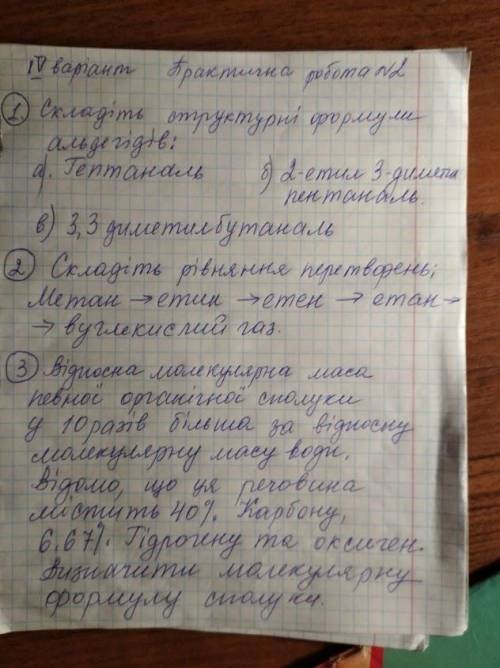 IV варіант Практична робота №2
1. Складіть структурні формули
альдегідів:
а). Гептаналь б) 2-етил 3-димети
пентаналь.
в) 3,3 диметилбутаналь
2 Складіть рівняння перетворень;
Метан → етин → етен → етан →
→ вуглекислий газ.
3 Відносна молекулярна маса
певної органічної сполуки
у 10 разів більша за відносну
молекулярну масу води.
Відомо, що ця речовина
містить 40% Карбону,
6.67% Гідрогену та оксиген.
Визначити молекулярну
формулу сполуки.